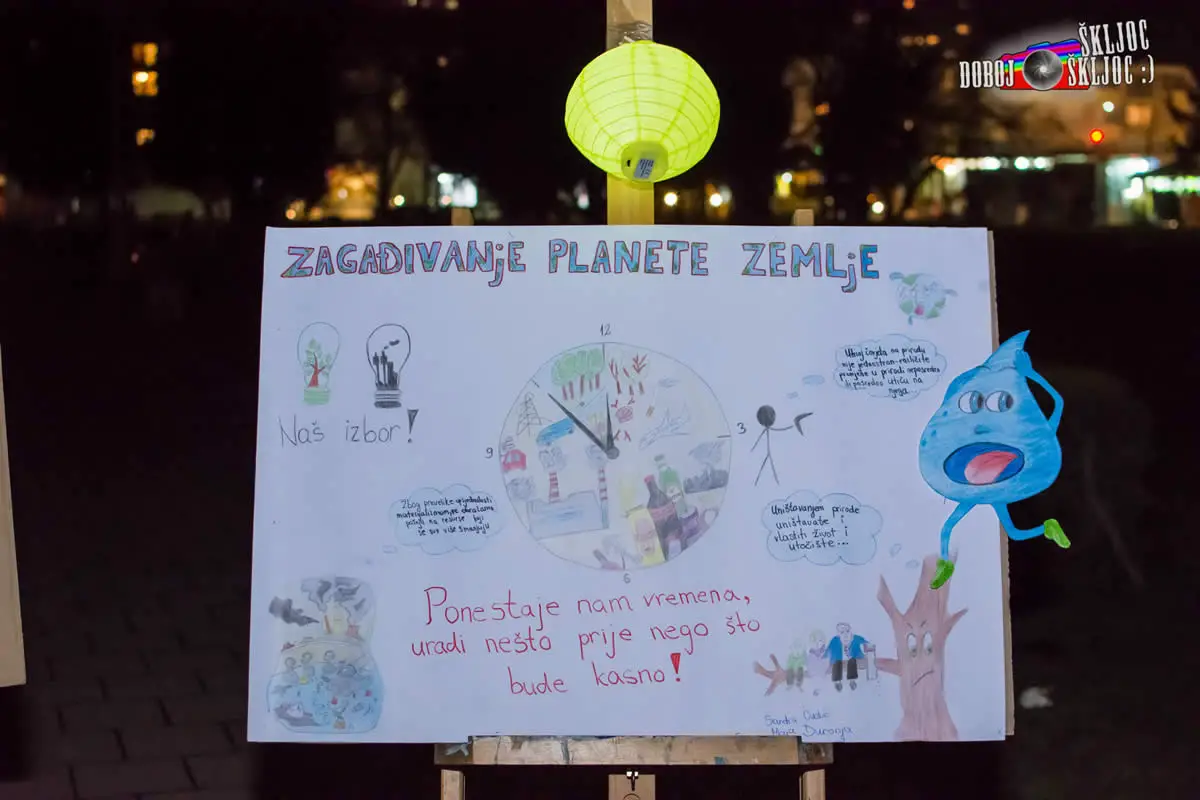 ŠKLJOC
DOBOJ ŠKLJOC :)
ZAGAĐIVANjE PLANETE ZEMLjE
Naš izbor!
12
3
6
9
Uticaj čovjeka na prirodu
nije jednostran-različite
promjene u prirodi neposredno
ili posredno utiču na
njega.
Zbog prevelike
materijalizmom, ne obraćamo
pažnju na resurse koji
se sve više smanjuju
Uništavanjem prirode
uništavate i
vlastiti život i
utočište...
Ponestaje nam vremena,
uradi nešto prije nego što
bude kasno!
Sandra
Maja